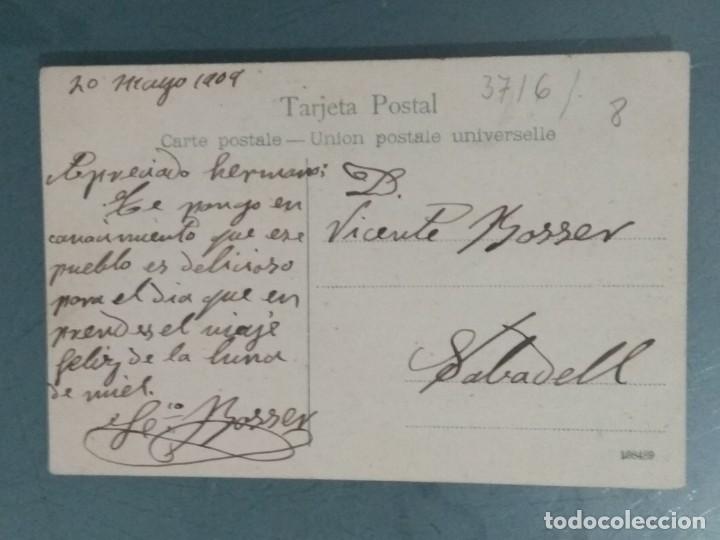 20 Mayo 1909
3716/.
8
Tarjeta Postal
Carte postale — Union postale universelle
Apreciado hermano:
Te pongo en
conocimiento que ese
pueblo es delicioso
para el dia que en
prendes el viaje
feliz de la luna
de miel.
Bosser
D.
Vicente Bosser
Sabadell
188489
todocoleccion
todocoleccion.net